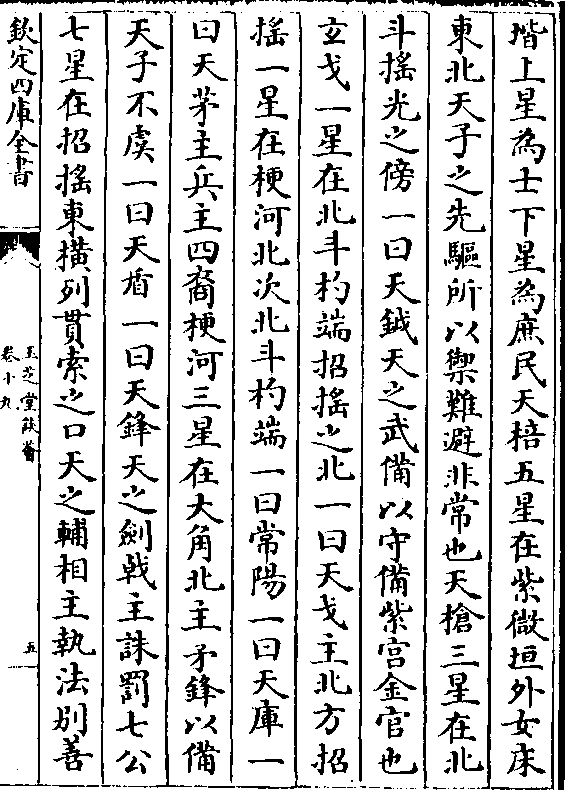 堦上星為士下星為庶民天棓五星在紫微垣外女床
東北天子之先驅所以禦難避非常也天槍三星在北
斗搖光之傍一曰天鉞天之武備以守備紫宫金官也
玄戈一星在北斗杓端招摇之北一曰天戈主北方招
摇一星在梗河北次北斗杓端一曰常陽一曰天庫一
曰天茅主兵主四裔梗河三星在大角北主矛鋒以備
天子不虞一曰天盾一曰天鋒天之劍戟主誅罰七公
七星在招摇東横列貫索之口天之輔相主執法别善
欽定四庫全書
玉芝堂談薈
卷十九
五